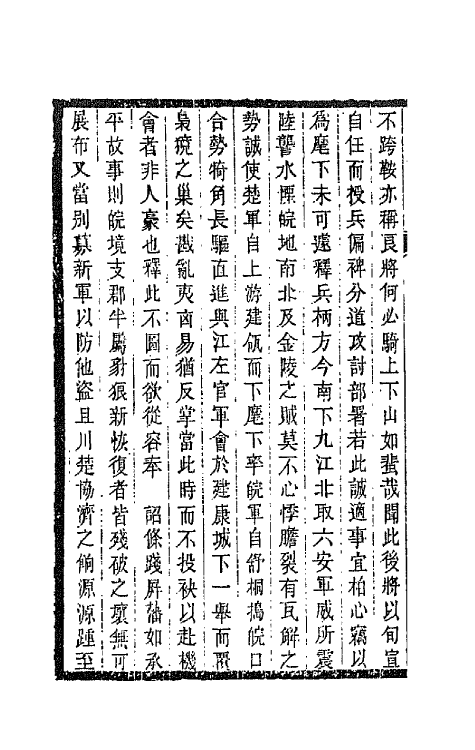 不跨鞍亦稱良將何必騎上下山如蜚哉聞此後將以旬宣
自任而授兵偏裨分道攻討部署若此誠適事宜柏心竊以
爲麾下未可遽釋兵柄方今南下九江北取六安軍威所震
陸讋水慄皖地南北及金陵之賊莫不心悸膽裂有瓦解之
勢誠使楚軍自上游建瓴而下麾下率皖軍自舒桐搗皖口
合勢犄角長驅直進與江左官軍會於建康城下一舉而覆
梟獍之巢矣戡亂夷凶易猶反掌當此時而不投袂以赴機
會者非人豪也釋此不圖而欲從容奉　詔條踐屏藩如承
平故事則皖境支郡半屬豺狼新恢復者皆殘破之壤無可
展布又當別募新軍以防他盜且川楚協濟之餉源源踵至